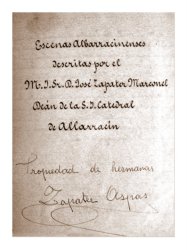 Escenas Albarracinenses
descritas por el
M. I. Sr. D. José Zapater Marconel
Deán de la S. I. Catedral
de Albarracín
Propiedad de hermanas
Zapater Aspas